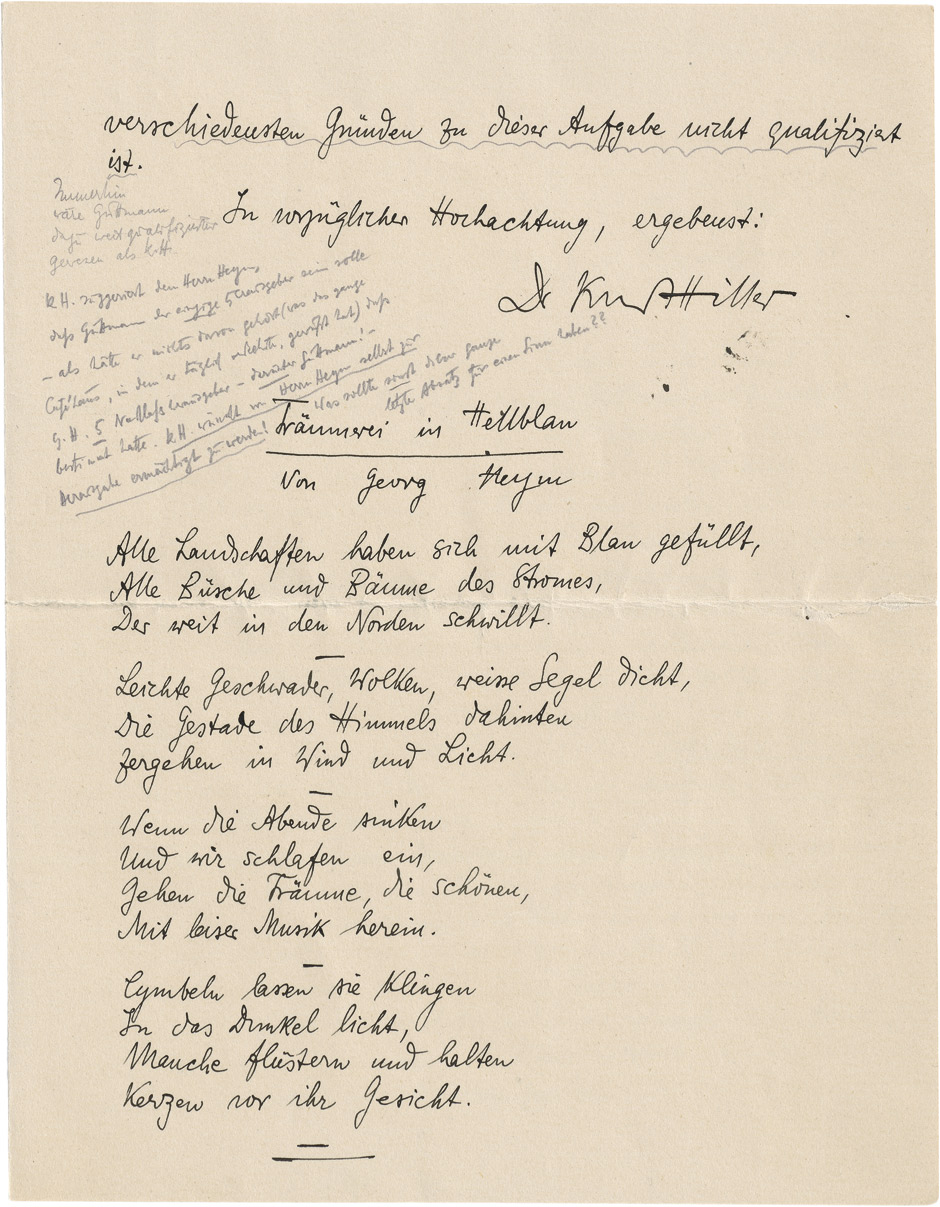 verschiedensten Gründen zu dieser Aufgabe nicht qualifiziert
ist.
Immerhin
wäre Guttmann
dazu weit qualifizierter
gewesen als K.H.
In vorzüglicher Hochachtung, ergebenst:
Dr Kurt Hiller
K.H. suggeriert dem Herrn Heym,
daß Guttmann der einzige Herausgeber sein solle
– als hätte er nichts davon gehört (was das ganze
Caféhaus, in dem er täglich verkehrte, gewußt hat) daß
G.H. 5 Nachlaßherausgeber – darunter Guttmann! –
bestimmt hatte. K.H. wünscht von Herrn Heym selbst zur
Herausgabe ermächtigt zu werden!
Was sollte sonst dieser ganze
letzte Absatz für einen Sinn haben??
Träumerei in Hellblau
Von Georg Heym
Alle Landschaften haben sich mit Blau gefüllt,
Alle Büsche und Bäume des Stromes,
Der weit in den Norden schwillt.
Leichte Geschwader, Wolken, weisse Segel dicht,
Die Gestade des Himmels dahinten
Zergehen in Wind und Licht.
Wenn die Abende sinken
Und wir schlafen ein,
Gehen die Träume, die schönen,
Mit leiser Musik herein.
Cymbeln lassen sie klingen
In das Dunkel licht,
Manche flüstern und halten
Kerzen vor ihr Gesicht.